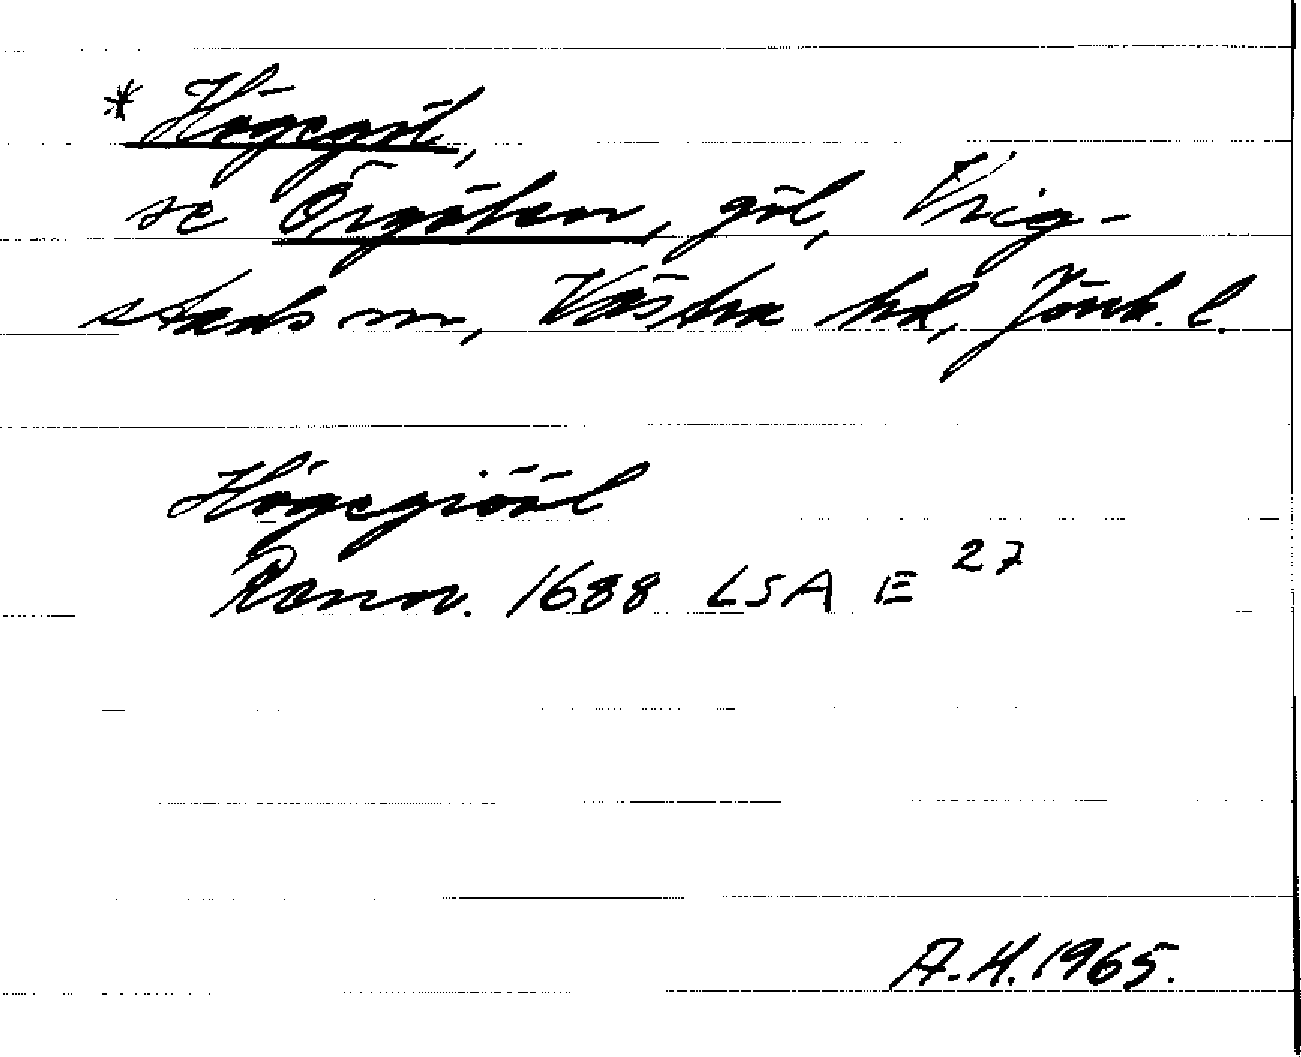 * Högegöl,
se Örgölen, göl, Vrig-
stads sn, Västra hd, Jönk. l.
Högegiööl
Rann. 1688 LSA E 27
A.H. 1965.